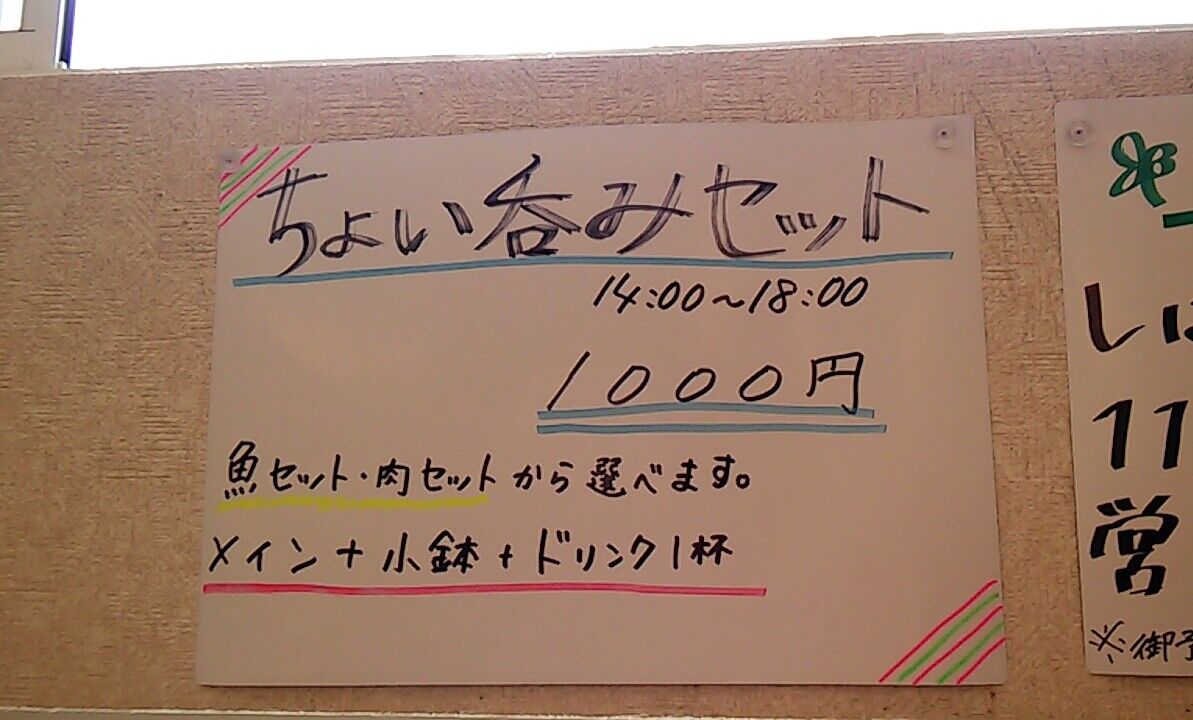 ちょい呑みセット
14:00～18:00
1000円
魚セット・肉セットから選べます。
メイン+小鉢+ドリンク1杯
し
11
営
※御予